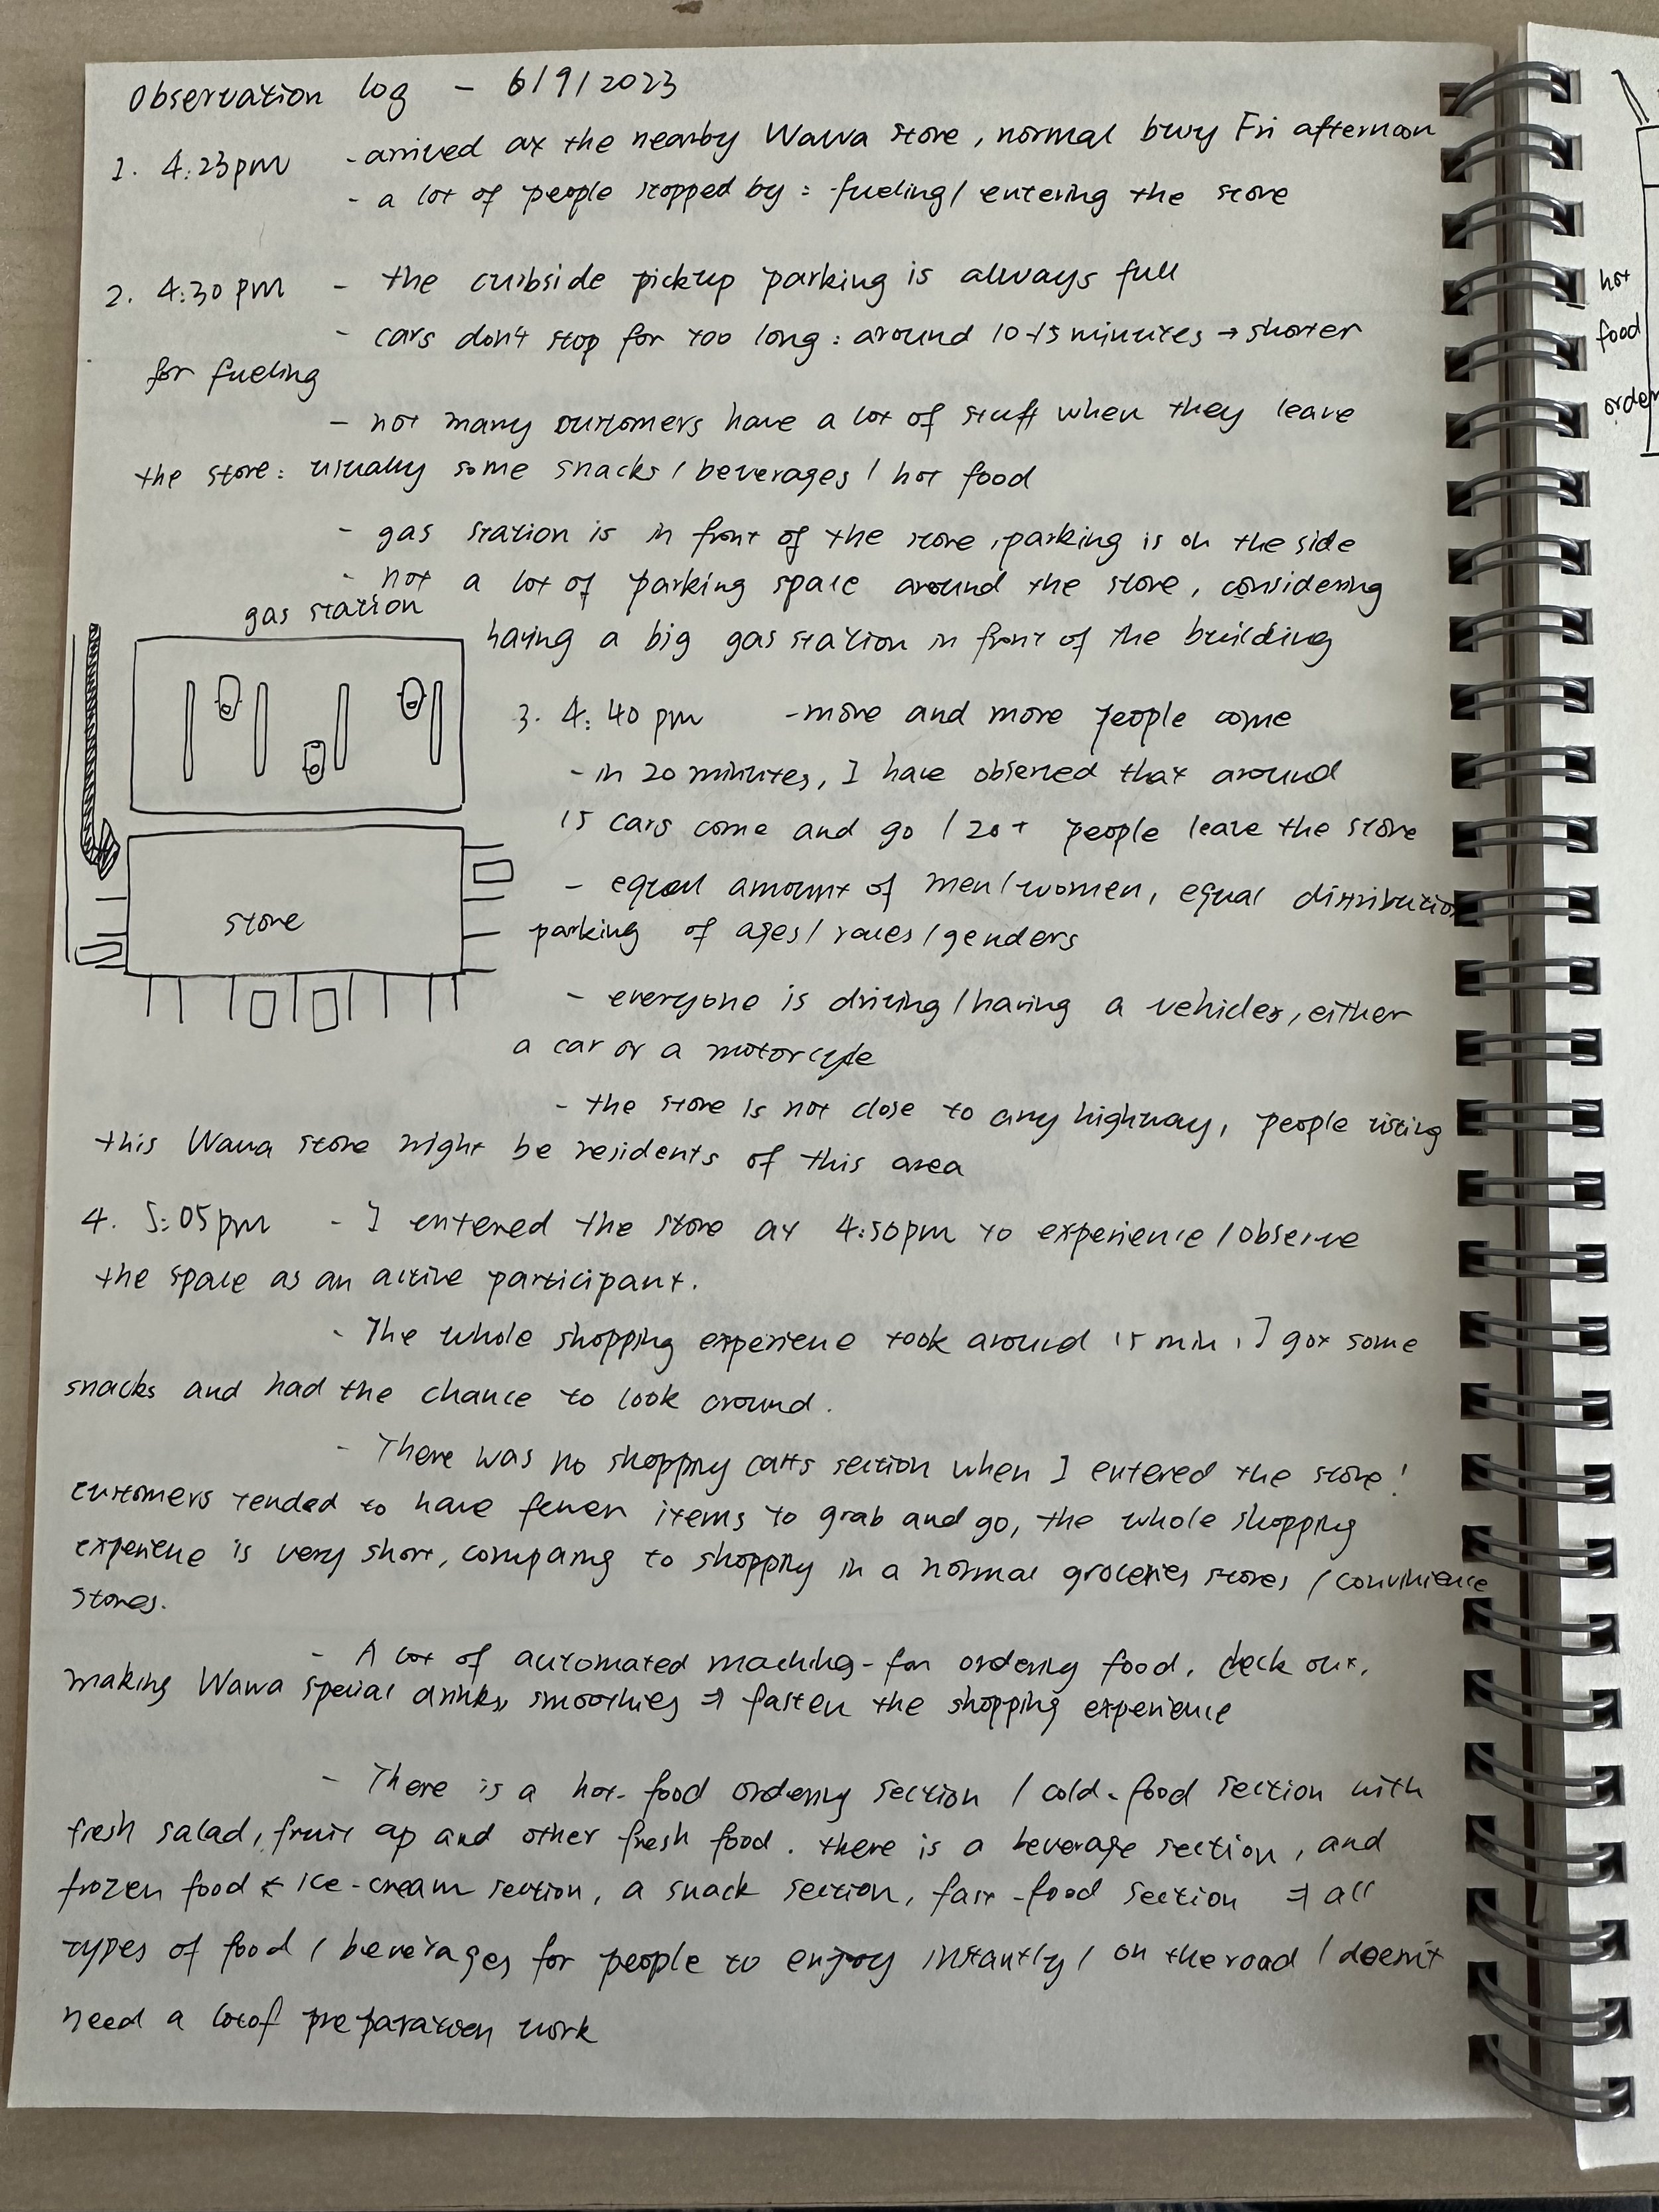 Observation log - 6/9/2023
1. 4:23pm - arrived at the nearby Wawa store, normal busy Fri afternoon
- a lot of people stopped by: fueling/ entering the store
2. 4:30pm - the curbside pickup parking is always full
- cars don't stop for too long: around 10-15 minutes → shorter
for fueling
- not many customers have a lot of stuff when they leave
the store: usually some snacks / beverages / hot food
- gas station is in front of the store, parking is on the side
- not a lot of parking space around the store, considering
having a big gas station in front of the building
gas station
store
parking
3. 4:40 pm - more and more people come
- in 20 minutes, I have observed that around
15 cars come and go / 20+ people leave the store
- equal amount of men/women, equal distribution
of ages/ races / genders
- everyone is driving / having a vehicles, either
a car or a motorcycle
- the store is not close to any highway, people visting
this Wawa store might be residents of this area
4. 5:05pm - I entered the store at 4:50pm to experience / observe
the space as an active participant.
- The whole shopping experience took around 15 min, I got some
snacks and had the chance to look around.
- There was no shopping carts section when I entered the store!
customers tended to have fewer items to grab and go, the whole shopping
experience is very short, comparing to shopping in a normal groceries stores / convinience
stores.
- A lot of automated machines - for ordering food, check out,
making Wawa special drinks, smoothies ⇒ fasten the shopping experience
- There is a hot-food ordering section / cold-food section with
fresh salad, fruit and other fresh food. there is a beverage section, and
frozen food & ice-cream section, a snack section, fast-food section ⇒ all
types of food / beverages for people to enjoy instantly / on the road / doesn't
need a lot of preparation work
hot
food
order